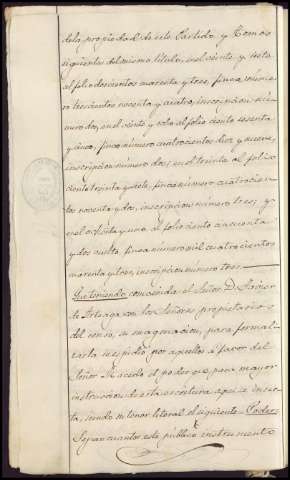 de la propiedad de este Partido, y Tomos
siguientes del mismo título, en el veinte y siete
al folio doscientos cuarenta y tres, finca número
trescientos noventa y cuatro, inscripción nú-
mero dos; en el veinte y ocho al folio ciento sesenta
y cinco, finca número cuatrocientos diez y nueve,
inscripción número dos; en el treinta al folio
ciento treinta y siete, finca número cuatrocien-
tos noventa y dos, inscripción número tres; y
en el ochenta y uno al folio ciento cincuenta
y dos vuelto, finca número mil cuatrocientos
cuarenta y tres, inscripción número tres.
Que teniendo convenida el Señor D. Javier
de Arteaga con los Señores propietarios
del censo, su enagenacion, para formali-
zarla se espidió por aquellos a favor del
Señor Maceda el poder que para mayor
instruccion de esta escritura aqui se inser-
ta, siendo su tenor literal el siguiente = Poder
Sepan cuantos este público instrumento